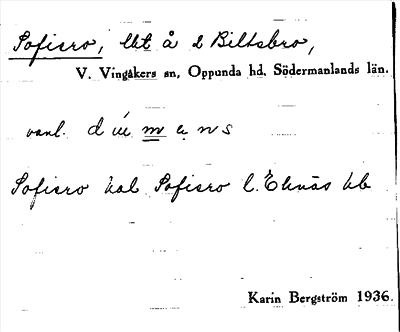 Sofiero, lht å 2 Biltsbro,
V. Vingåkers sn, Oppunda hd, Södermanlands län.
vanl.
Sofiero hal Sofiero l. Eknäs hb
Karin Bergström 1936.